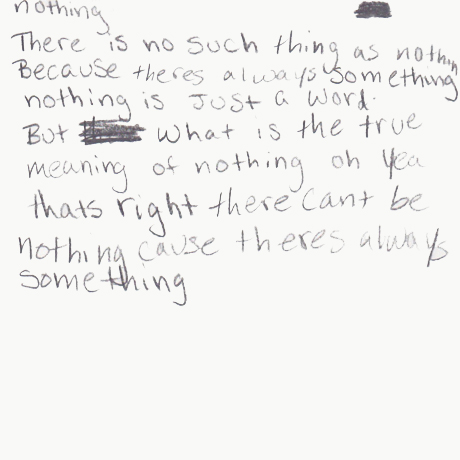 nothing
There is no such thing as nothin
Because theres always something
nothing is Just a word.
But what is the true
meaning of nothing oh yea
thats right there cant be
nothing cause theres always
something